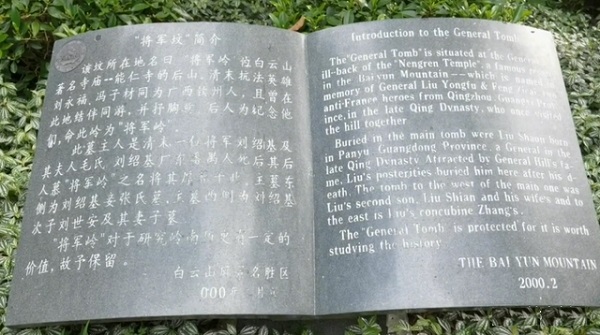 "将军坟"简介
该坟所在地名曰"将军岭"位白云山
著名寺庙--能仁寺的后山。清末抗法英雄
刘永福、冯子材同为广西钦州人，且曾在
此地结伴同游，并抒胸
后人为纪念他
们，命此岭为"将军岭"。
此墓主人是清末一位将军刘绍基及
其夫人毛氏，刘绍基广东番禺人他后其后
人慕"将军岭"之名将其
主墓东
侧为刘绍基妾张氏墓，主墓西侧为刘绍基
次子刘世安及其妻子墓。
"将军岭"对于研究岭南历史有一定的
价值，故予保留。
白云山风景名胜区
Introduction to the General Tomb
The "General Tomb" is situated at the General
ill-back of the "Nengren Temple", a famous
in the Baiyun Mountain——which is named in
memory of General Liu Yongfu & Feng
anti-France heroes from Qingzhou, Guangxi Prov-
ince, in the late Qing Dynasty, who once visited
the hill together.
Buried in the main tomb were Liu Shaoji born
in Panyu, Guangdong Province, a General in the
late Qing Dynasty. Attracted by General Hill's
me, Liu's posterities buried him here after his d-
eath. The tomb to the west of the main one was
Liu's second son, Liu Shian and his wife's and to
the east is Liu's concubine Zhang's.
The "General Tomb" is protected for it is worth
studying the history.
THE BAI YUN MOUNTAIN
2000.2